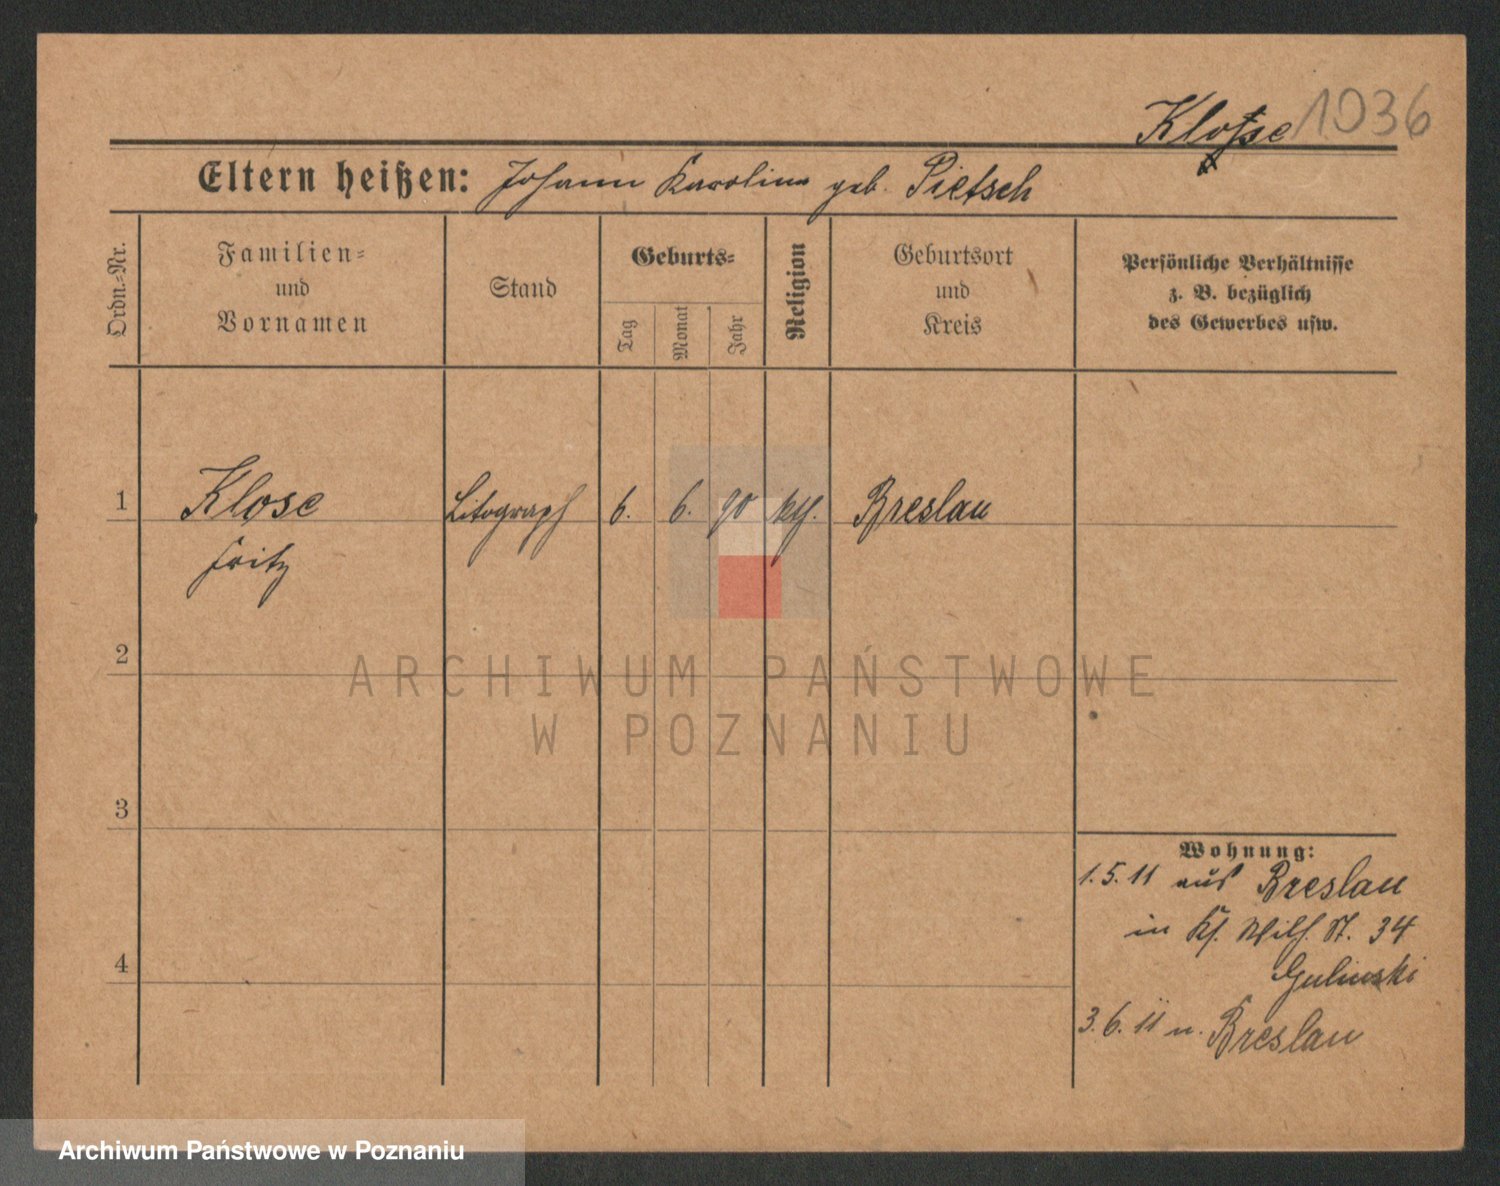 Klose 1036
Eltern heißen: Johann Karolina geb. Pietsch
Ordn.=Nr.
Familien=
und
Vornamen
Stand
Geburts=
Tag
Monat
Jahr
Religion
Geburtsort
und
Kreis
Persönliche Verhältnisse
z. B. bezüglich
des Gewerbes usw.
1 Klose Litograph 6. 6. 90 kth. Breslau
Fritz
2
3
4
Wohnung:
1.5.11 aus Breslau
in Kf. Wilh. St. 34
Gulinski
3.6.11 n. Breslau
ARCHIWUM PAŃSTWOWE
W POZNANIU
Archiwum Państwowe w Poznaniu